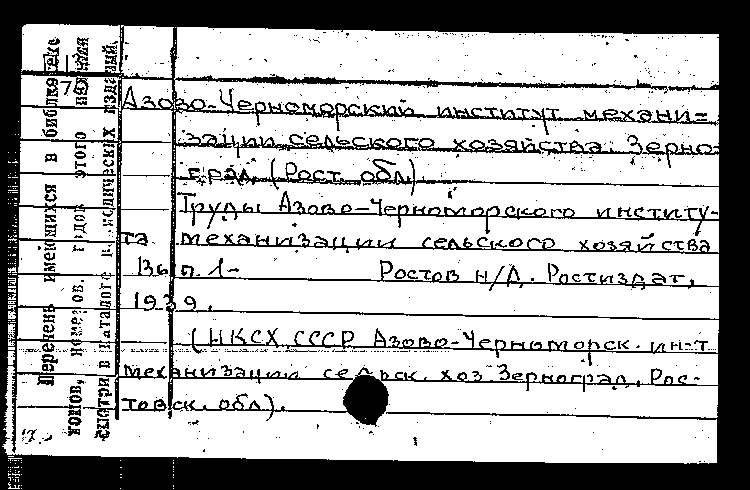 Перечень имеющихся в библиотеке
томов, номеров, годов этого издания
смотри в каталоге периодических изданий.
Азово-Черноморский институт механи=
зации сельского хозяйства. Зерно=
град (Рост. обл).
Труды Азово-Черноморского институ-
та механизации сельского хозяйства
Вып. 1-        Ростов н/Д. Ростиздат,
1939.
(НКСХ СССР Азово-Черноморск. ин-т
механизации сельск. хоз Зерноград, Рос-
товск. обл).